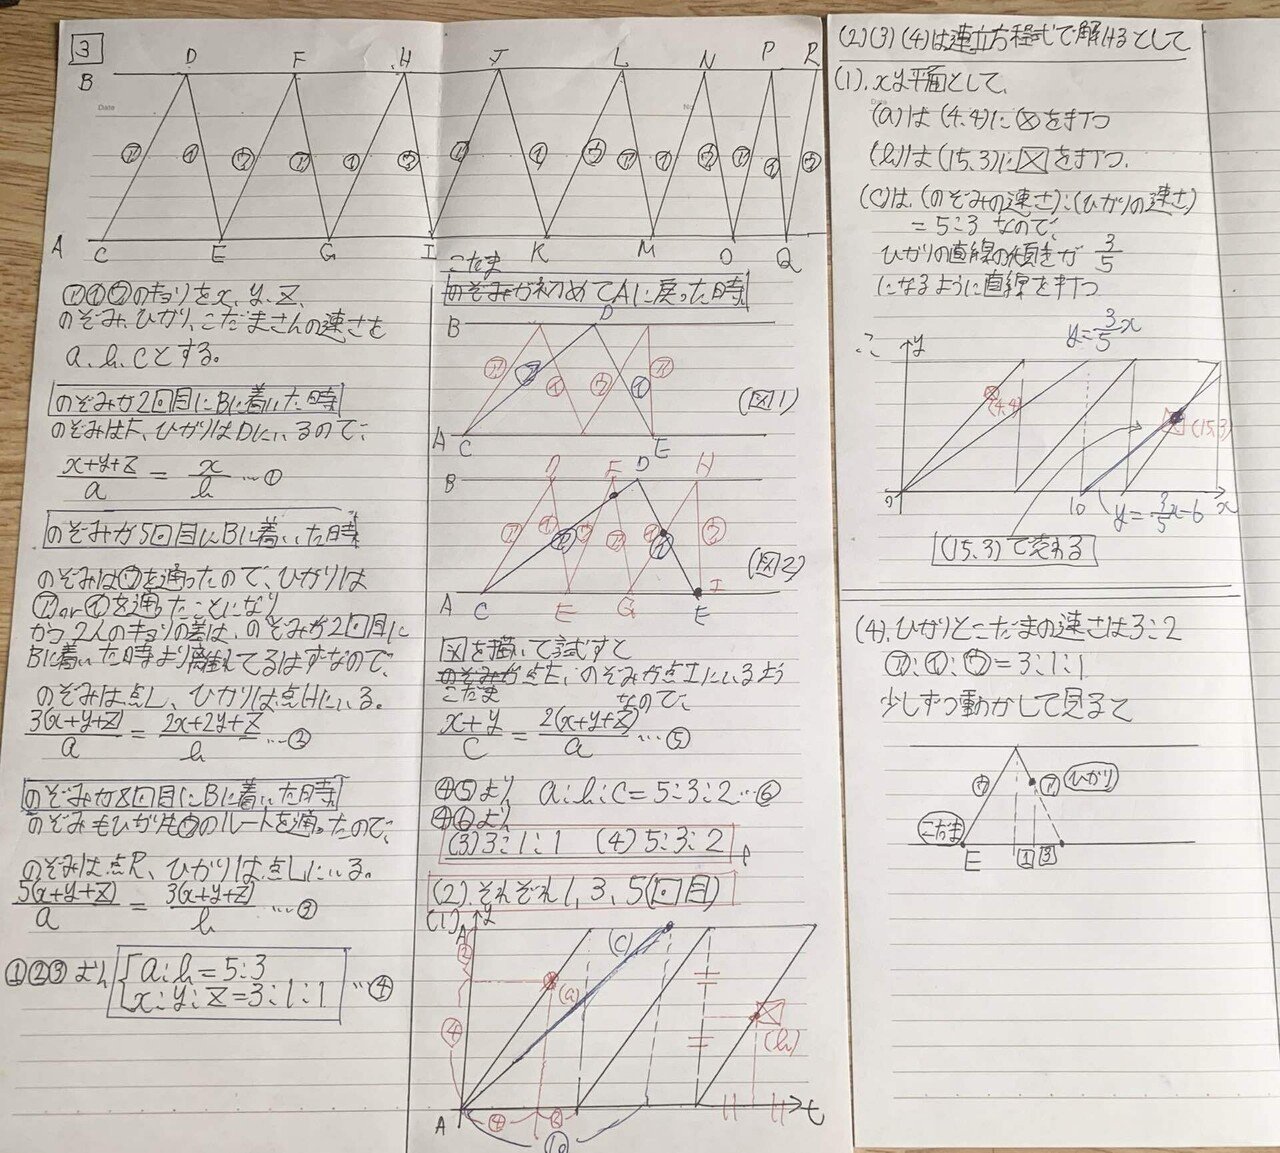 3
D F H J L N P R
B
ア イ ウ ア イ ウ ア イ ウ ア イ ウ ア イ ウ
A C E G I K M O Q
ア イ ウのキョリをx、y、z、
のぞみ、ひかり、こだまさんの速さを
a、b、cとする。
のぞみが2回目にBに着いた時
のぞみはF、ひかりはDにいるので、
(x+y+z)/a = x/b …①
のぞみが5回目にBに着いた時
のぞみはウを通ったので、ひかりは
ア or イを通ったことになり
かつ2人のキョリの差は、のぞみが2回目に
Bに着いた時より離れてるはずなので、
のぞみは点L、ひかりは点Hにいる。
3(x+y+z)/a = (2x+2y+z)/b …②
のぞみが8回目にBに着いた時
のぞみもひかりもウのルートを通ったので、
のぞみは点R、ひかりは点Lにいる。
5(x+y+z)/a = 3(x+y+z)/b …③
①②③より
a:b=5:3
x:y:z=3:1:1 …④
こだま
のぞみが初めてAに戻った時
B D
ア ア イ ウ イ ア
(図1)
A C E
B D F D H
ア イ ア ウ ア イ ウ
(図2)
A C E G E I
図を描いて試すと
こだま
が点E、のぞみが点Iにいるよう
なので、
(x+y)/c = 2(x+y+z)/a …⑤
④⑤より a:b:c=5:3:2…⑥
④⑥より
(3)3:1:1 (4)5:3:2
(2).それぞれ1,3,5(回目)
(1)
y
A
② (a) (c)
④ (b)
A ④ ② t
10
(2)(3)(4)は連立方程式で解けるとして
(1).xy平面として、
(a)は(4.4)に⊗を打つ
(b)は(15.3)に☒を打つ.
(c)は、(のぞみの速さ):(ひかりの速さ)
=5:3 なので、
ひかりの直線の傾きが 3/5
になるように直線を打つ
y=3/5x
y
(4.4)
(15,3)
0 10 y=3/5x-6 x
(15.3)で交わる
(4).ひかりとこだまの速さは3:2
ア:イ:ウ=3:1:1
少しずつ動かして見ると
ウ ア ひかり
こだま
E 1 3